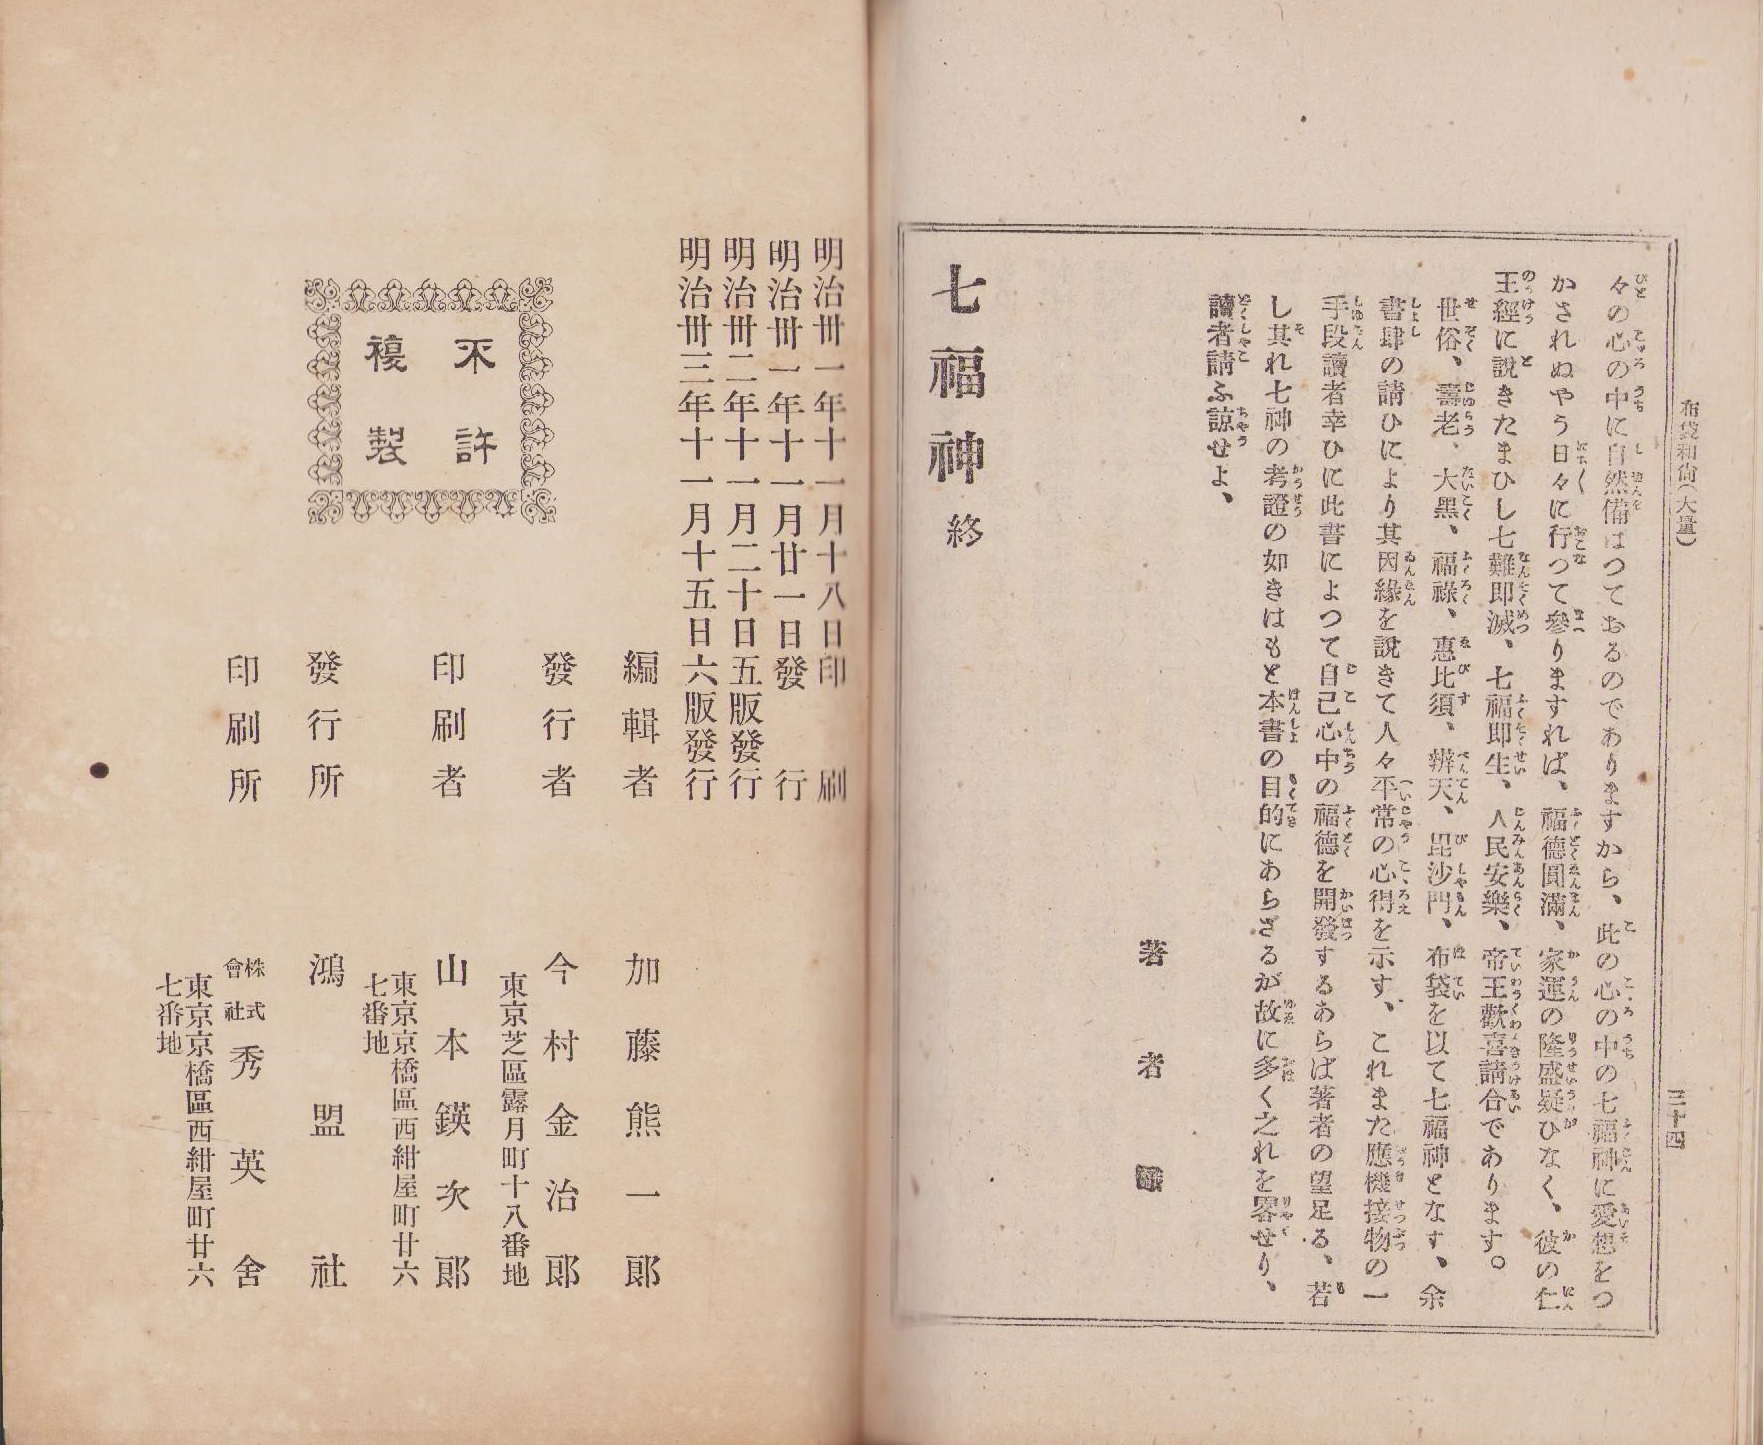 布袋和尚(大量)
三十四
々の心の中に自然備はつておるのでありますから、此の心の中の七福神に愛想をつ
かされぬやう日々に行つて參りますれば、福德圓滿、家運の隆盛疑ひなく、彼の仁
王經に說きたまひし七難即滅、七福即生、人民安樂、帝王歡喜請合であります。
世俗、壽老、大黑、福祿、惠比須、辨天、毘沙門、布袋を以て七福神となす、余
書肆の請ひにより其因緣を說きて人々平常の心得を示す、これまた應機接物の一
手段讀者幸ひに此書によつて自己心中の福德を開發するあらば著者の望足る、若
し其れ七神の考證の如きはもと本書の目的にあらざるが故に多く之れを畧せり、
讀者請ふ諒せよ、
著者
七福神終
明治卅一年十一月十八日印刷
明治卅一年十一月廿一日發行
明治卅二年十一月二十日五版發行
明治卅三年十一月十五日六版發行
不許
複製
編輯者 加藤熊一郎
發行者 今村金治郎
東京芝區露月町十八番地
印刷者 山本鍈次郎
東京京橋區西紺屋町廿六
七番地
發行所 鴻盟社
印刷所 株式會社秀英舍
東京京橋區西紺屋町廿六
七番地